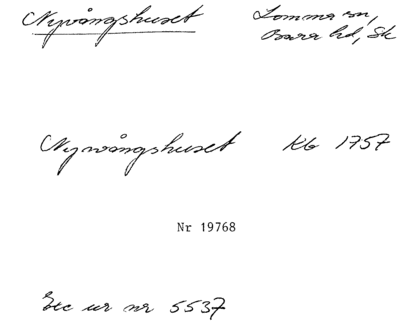 Nyvångshuset Lomma sn,
Bara hd, Sk
Nyvångshuset Kb 1757
Nr 19768
Exc ur nr 5537